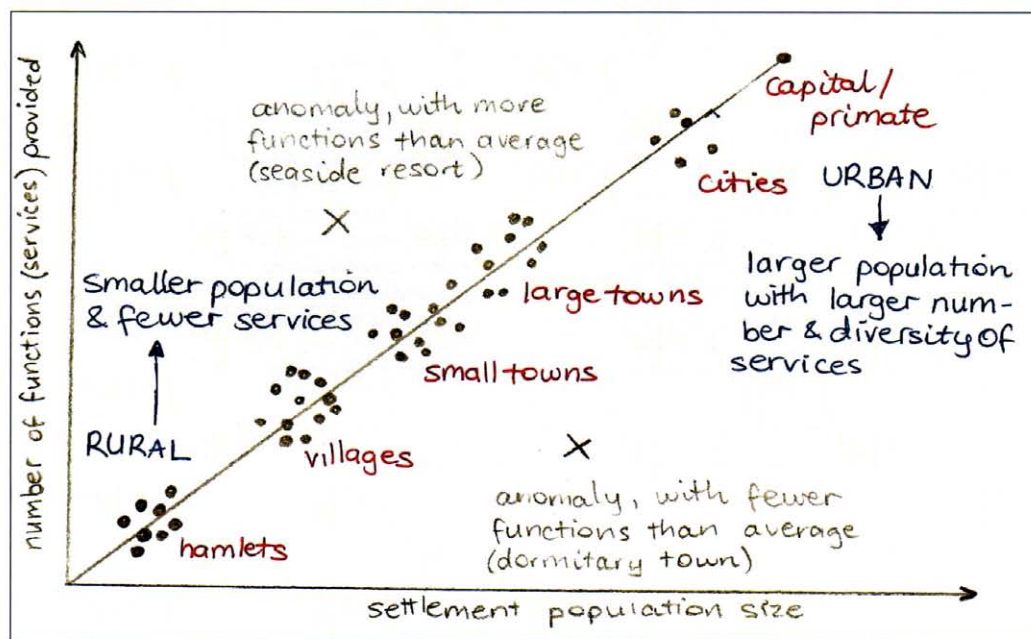 number of functions (services) provided
anomaly, with more
functions than average
(seaside resort)
capital/
primate
cities
URBAN
larger population
with larger num-
ber & diversity of
services
smaller population
& fewer services
RURAL
large towns
small towns
villages
hamlets
anomaly, with fewer
functions than average
(dormitary town)
settlement population size